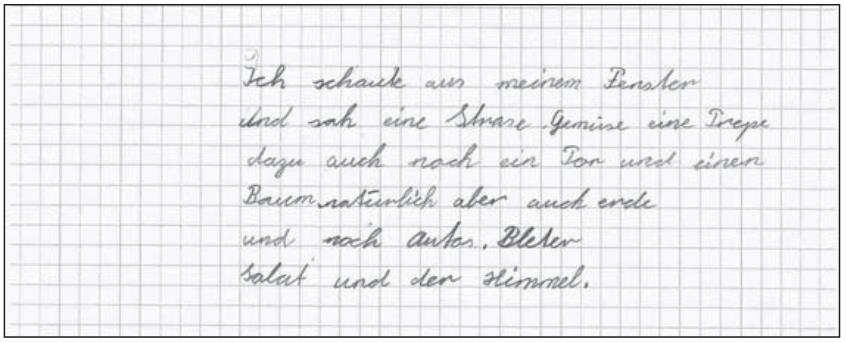 Ich schaute aus meinem Fenster
und sah eine Strase. Gemüse eine Trepe
dazu auch noch ein Tor und einen
Baum, natürlich aber auch erde
und noch Autos, Bleter
Salat und der Himmel.